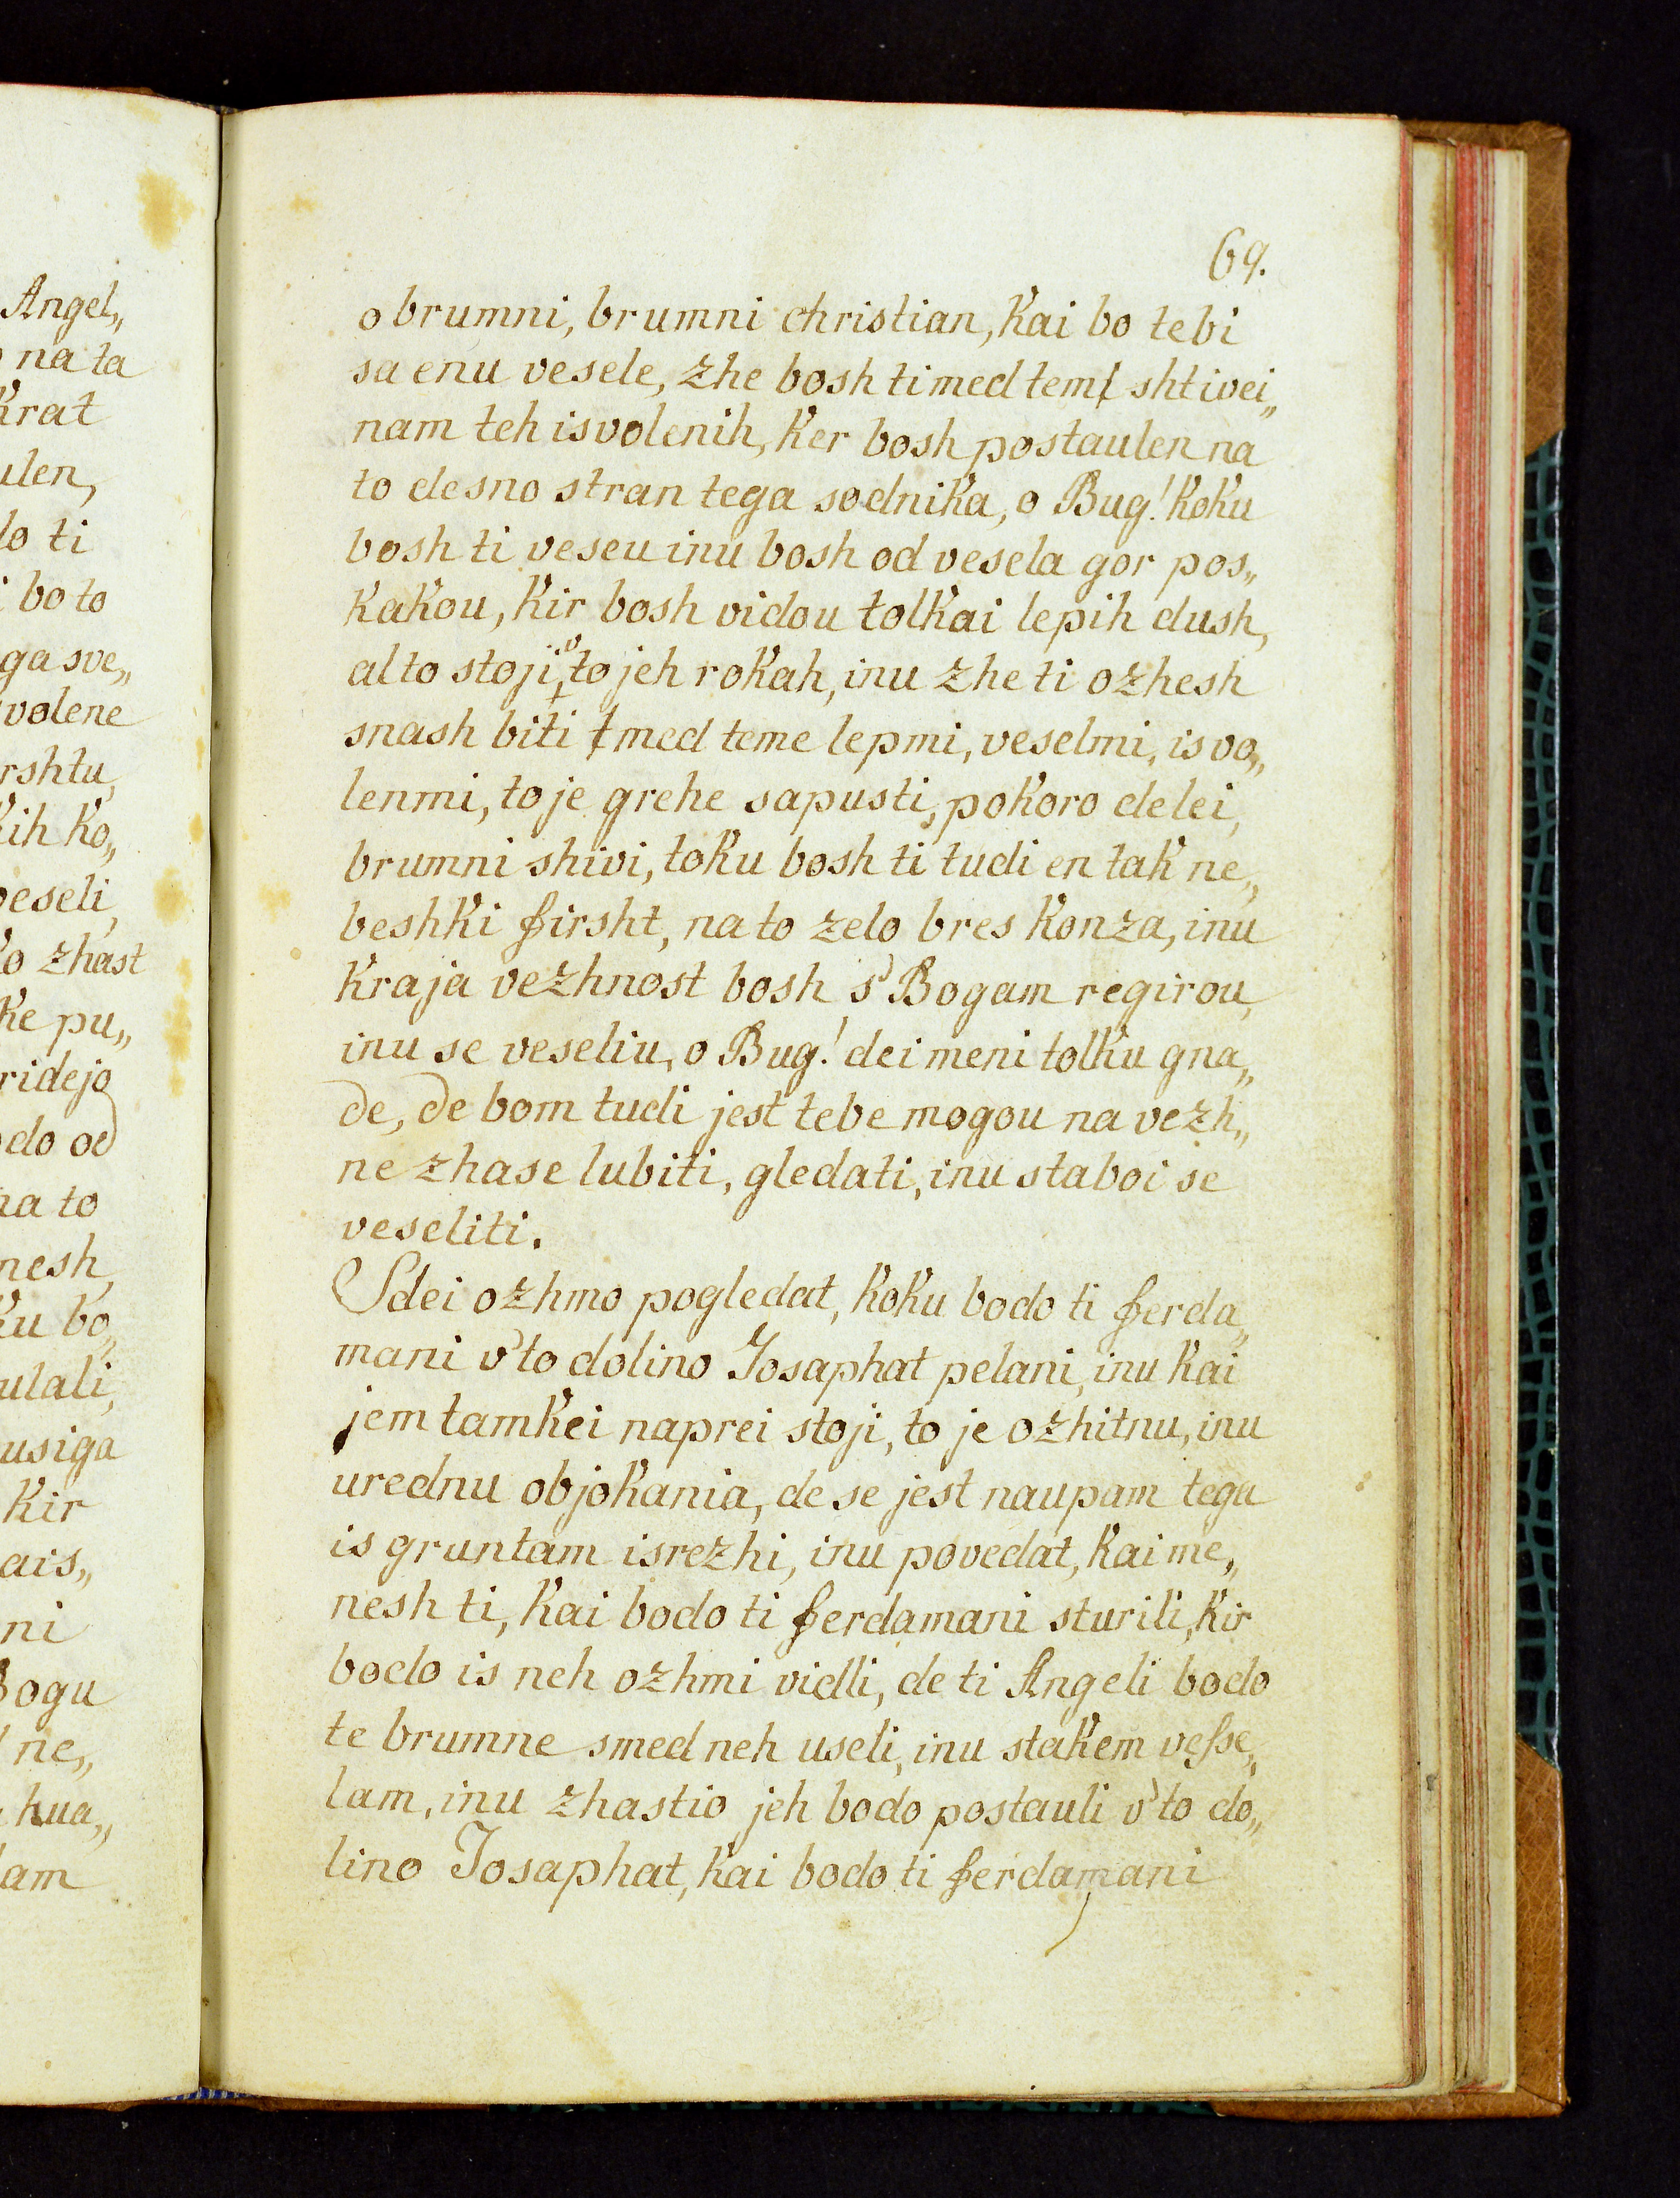 Angel„
na ta
krat
ulen,
do ti
bo to
ga sve„
volene
rshtu,
kih ko„
veseli,
ko zhast
ke pu„
ridejo
odo od
na to
nesh,
ku bo„
ulali,
usiga
kir
ais„
ni
Bogu
ne„
hua„
lam
69.
o brumni, brumni christian, kai bo tebi
sa enu vesele, zhe bosh ti med tem shtivei„
nam teh isvolenih, ker bosh postaulen na
to desno stran tega sodnika, o Bug! koku
bosh ti veseu inu bosh od vesela gor pos„
kakou, kir bosh vidou tolkai lepih dush,
al to stoji, to jeh rokah, inu zhe ti ozhesh
snash biti med teme lepmi, veselmi, isvo„
lenmi, to je grehe sapusti, pokoro delei,
brumni shivi, toku bosh ti tudi en tak ne„
beshki firsht, na to zelo bres konza, inu
kraja vezhnost bosh s' Bogam regirou,
inu se veseliu, o Bug! dei meni tolku gna„
de, de bom tudi jest tebe mogou na vezh„
ne zhase lubiti, gledati, inu staboi se
veseliti.
Sdei ozhmo pogledat, koku bodo ti ferda„
mani v' to dolino Josaphat pelani, inu kai
jem tamkei naprei stoji, to je ozhitnu, inu
urednu objokania, de se jest naupam tega
is gruntam isrezhi, inu povedat, kai me„
nesh ti, kai bodo ti ferdamani sturili, kir
bodo is neh ozhmi vidli, de ti Angeli bodo
te brumne smed neh useli, inu stakem vesse„
lam, inu zhastio jeh bodo postauli v' to do„
lino Josaphat, kai bodo ti ferdamani